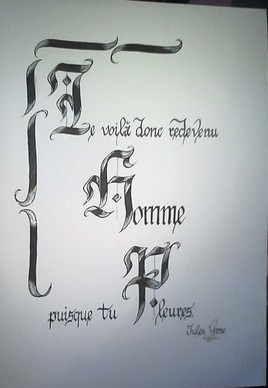 Te voilà donc redevenu
Homme
puisque tu Pleures.
Jules Verne